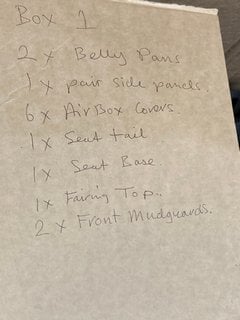 Box 1
2 x Belly Pans
1 x pair side panels.
6 x AirBox Covers.
1 x Seat tail
1x Seat Base.
1x Fairing Top..
2 x Front Mudguards.